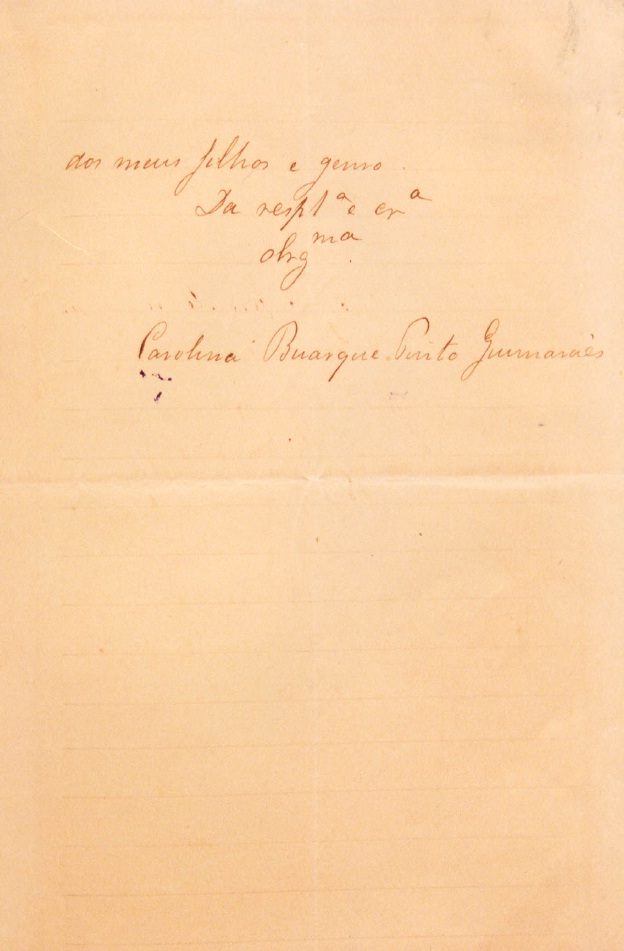 dos meus filhos e genro.
Da respt.ª e crª
obrgma.
Carolina Buarque Pinto Guimarães